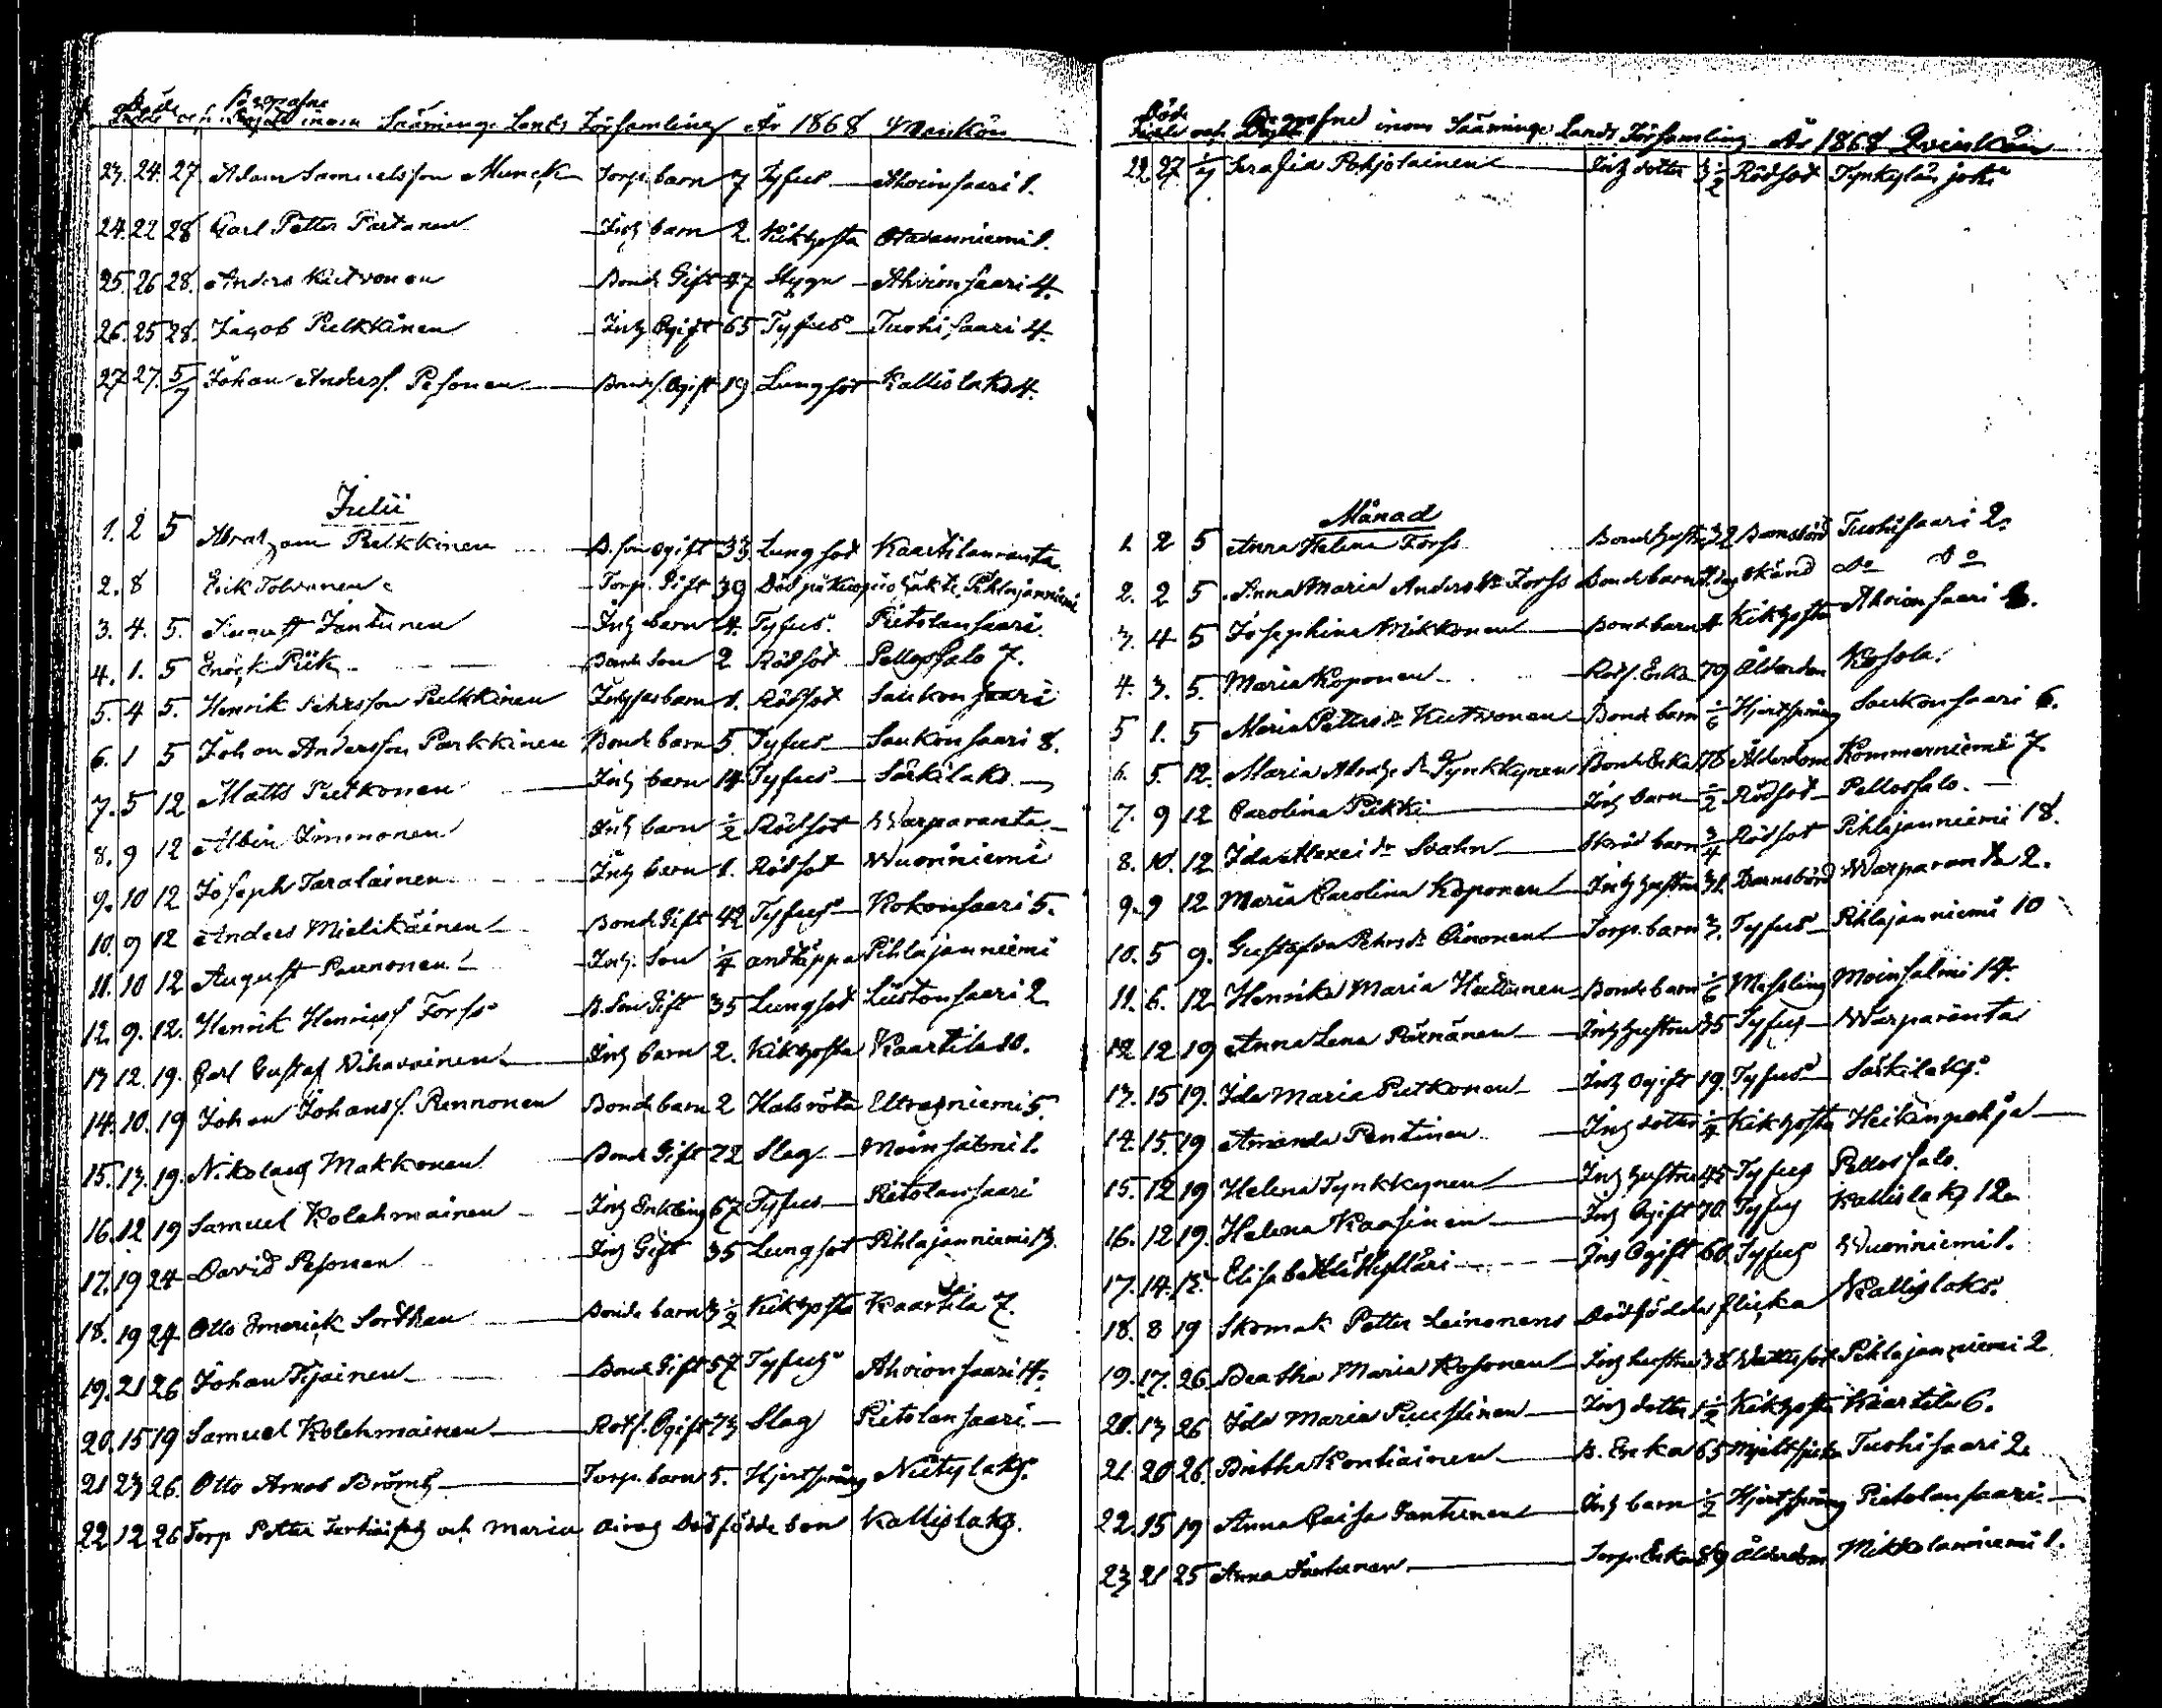 Döde och Begrafne inom Sääminge Lands Församling År 1868 Mankön
23. 24. 27. Adam Samuelsson Munck Torp. barn 7 Tyfus Ahvionsaari 1.
24. 22 28 Carl Petter Partanen Inh barn 2. Kikhosta Otavanniemi 1.
25. 26 28. Anders Kutvonen Bonde Gift 47 Ahvionsaari 4.
26. 25 28. Jacob Pulkkinen Inh Ogift 65 Tyfus Tuohisaari 4.
27 27. 5/7 Johan Anders. Pesonen Bonds. Ogift 19 Lungsot Kallislaks 4.
Julii
1. 2 5 Abraham Pulkkinen B. son ogift 33 Lungsot Kaartilanranta
2. 8 Erik Tolvanen Torp. Gift 39 Död på Kuopio häkte, Pihlajanniemi
3. 4. 5. August Jantunen Inh barn 4. Tyfus. Pietolansaari.
4. 1. 5 Enock Piik Bonde Son 2 Rödsot Pellossalo 7.
5. 4 5. Henrik Pehrsson Pulkkinen barn 1. Rödsot Saukonsaari
6. 1 5 Johan Andersson Parkkinen Bonde barn 5. Tyfus Saukonsaari 8.
7. 5 12 Matts Putkonen Inh barn 14 Tyfus Särkilaks
8. 9 12 Albin Immonen Inh barn 1/2 Rödsot Warparanta
9. 10 12 Joseph Taralainen Inh barn 1. Rödsot Wuoriniemi
10. 9 12 Anders Mielikäinen Bonde Gift 42 Tyfus Kokonsaari 5.
11. 10 12 August Paunonen Inh. Son 1/4 andtäppa Pihlajanniemi
12. 9. 12. Henrik Henrics. Forss B. Son Gift 35 Lungsot Liistonsaari 2
13 12. 19. Carl Gustaf Vihavainen Inh barn 2. Kikhosta Kaartila 10.
14. 10. 19 Johan Johans. Rennonen Bonde barn 2 Halsröta Eltrasniemi 5.
15. 13. 19. Nikolaus Makkonen Bonde Gift 72 Slag Moinsalmi 1.
16. 12 19 Samuel Kolehmainen Inh Enkling 67 Tyfus Pietolansaari
17. 19 24 David Pesonen Inh Gift 35 Lungsot Pihlajanniemi 13.
18. 19 24 Otto Emerick Sorthan Bonde barn 3 1/2 Kikhosta Kaartila 7.
19. 21 26 Johan Tijainen Bonde Gift 57 Tyfus Ahvionsaari 14.
20. 15 19 Samuel Kolehmainen Rots. Ogift 73 Slag Pietolansaari
21 23 26. Otto Amos Brömß Torp. barn 5. Hjertsprång Niitylaks.
22 12 26 Torp Petter och Maria Dödfödde son Kallislaks.
Döde och Begrafne inom Sääminge Lands Församling År 1868 Qvinkön
22 27 1/7 Serafia Pohjolainen Inh dotter 3 1/2 Rödsot Tynkkylänjoki
Månad
1. 2 5 Anna Helena Forss Bonde hustru 32 Barnsbörd Tuohisaari 2.
2. 2 5 Anna Maria Anders dr Forss Bonde barn dag okänd do do
3. 4 5 Josephina Mikkonen Bonde barn 4 Kikhosta Ahvionsaari
4. 3. 5. Maria Koponen Rots. Enka 79 Ålderdom Kosola.
5 1. 5 Maria Petters dr Kutvonen Bonde barn 1/6 Hjertsprång Saukonsaari 6.
6. 5. 12. Maria Abrahs dr Tynkkynen Bonde Enka 78 Ålderdom Kommerniemi 7.
7. 9 12 Carolina Pikki Inh barn 1/2 Rödsot Pellossalo.
8. 10. 12 Ida Alexei dr Svahn Skräd barn 3/4 Rödsot Pihlajanniemi 18.
9. 9 12 Maria Carolina Koponen Inh hustru 31. Barnsbörd Warparanta 2.
10. 5 9. Gustafva Pehrs dr Oinonen Torp. barn 3. Tyfus Pihlajanniemi 10
11. 6. 12 Henrika Maria Huttunen Bonde barn 1/6 Messling Moinsalmi 14.
12 12 19 Anna Lena Pärnänen Inh hustru 35 Tyfus Warparanta
13. 15 19. Ida Maria Putkonen Inh Ogift 19. Tyfus Särkilaks.
14. 15. 19 Amanda Pentinen Inh dotter 1/4 Kikhosta Heikinpohja
15. 12 19 Helena Tynkkynen Inh hustru 45 Tyfus Pellossalo.
16. 12 19. Helena Kaasinen Inh Ogift 70. Tyfus Kallislaks 12.
17. 14. 12. Elisabeth Hyttäri Inh Ogift 60. Tyfus Wuoriniemi 1.
18. 8 19 Skomak Petter Leinonens Dödfödda flicka Kallislaks.
19. 17. 26. Beatha Maria Kosonen Inh hustru 38 Wattusot Pihlajanniemi 2.
20. 13 26 Ida Maria Puustinen Inh dotter 1 1/2 Kikhosta Kaartila 6.
21 20 26. Britha Kontiainen B. Enka 65 Mjeltsjuka Tuohisaari 2.
22. 15 19 Anna Caisa Jantunen Inh barn 1/2 Hjertsprång Pietolansaari.
23 21 25 Anna Torp. Enka 89 Ålderdom Mikkolanniemi 1.